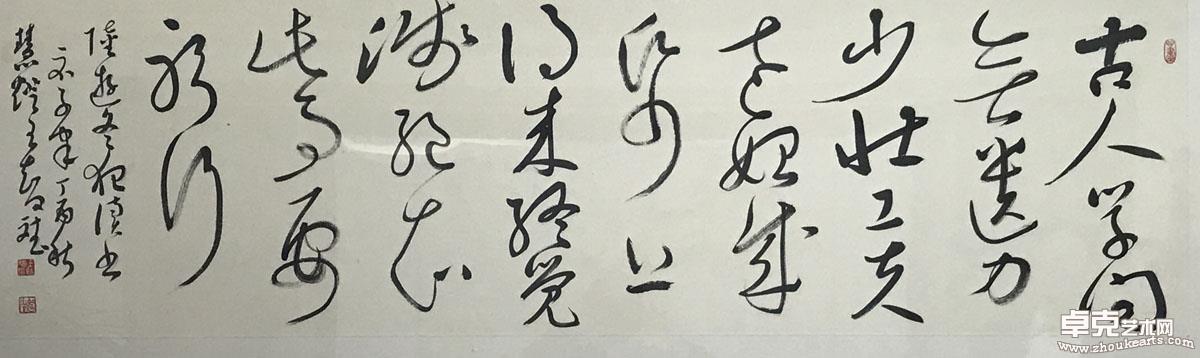 古人学问
无遗力
少壮工夫
老始成
纸上
得来终觉
浅绝知
此事要
躬行
陸遊冬夜读书
示子聿丁酉秋
慧燈王
卓克艺术网
www.zhoukearts.com